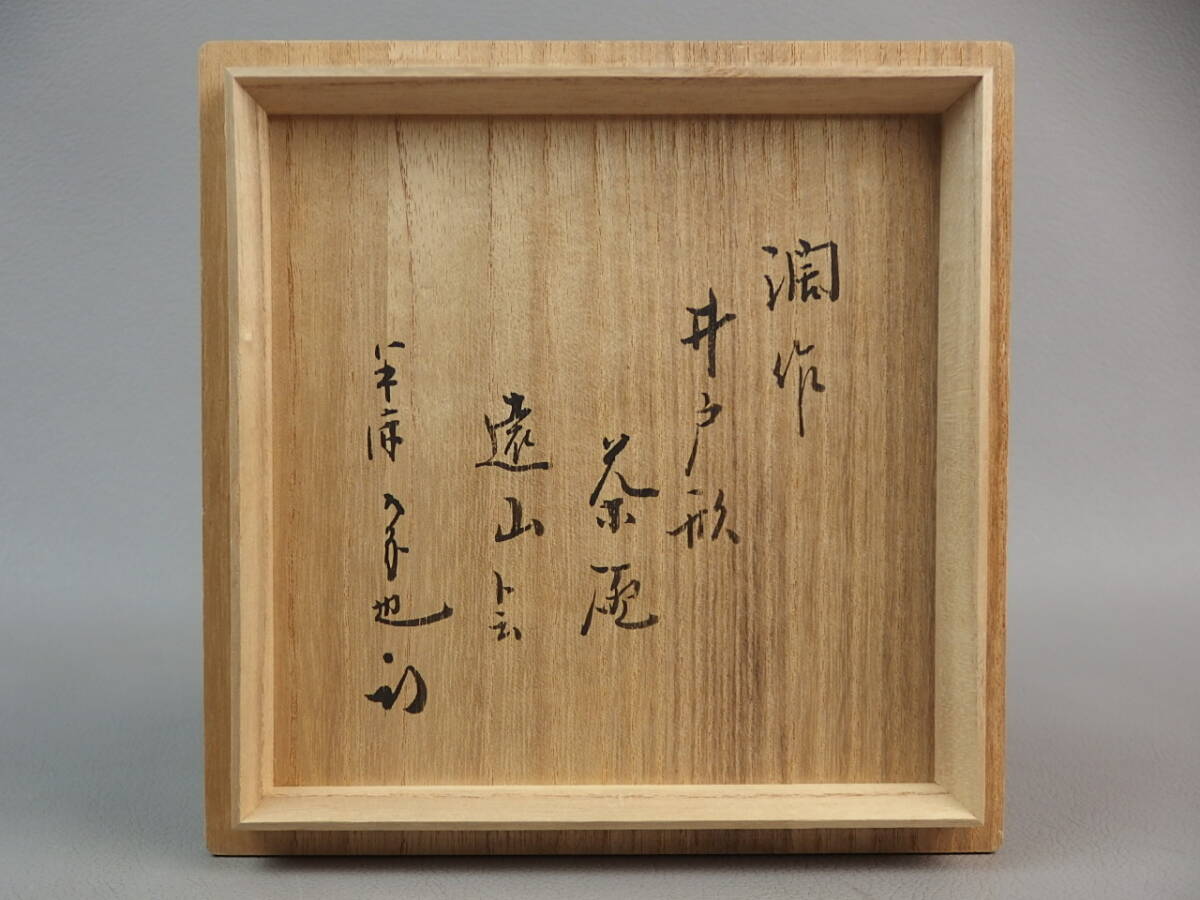 濶作
井戸形
茶碗
遠山ト云
半床